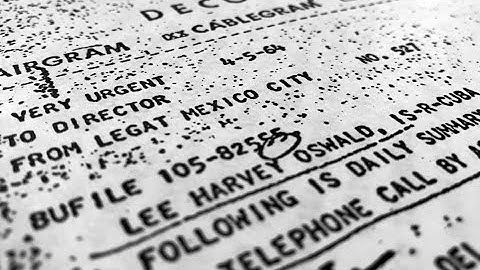 DECO
AIRGRAM OR CABLEGRAM
VERY URGENT 4-5-64
TO DIRECTOR NO. 527
FROM LEGAT MEXICO CITY
BUFILE 105-82555
LEE HARVEY OSWALD, IS-R-CUBA
FOLLOWING IS DAILY SUMMARY
TELEPHONE CALL BY
DEL